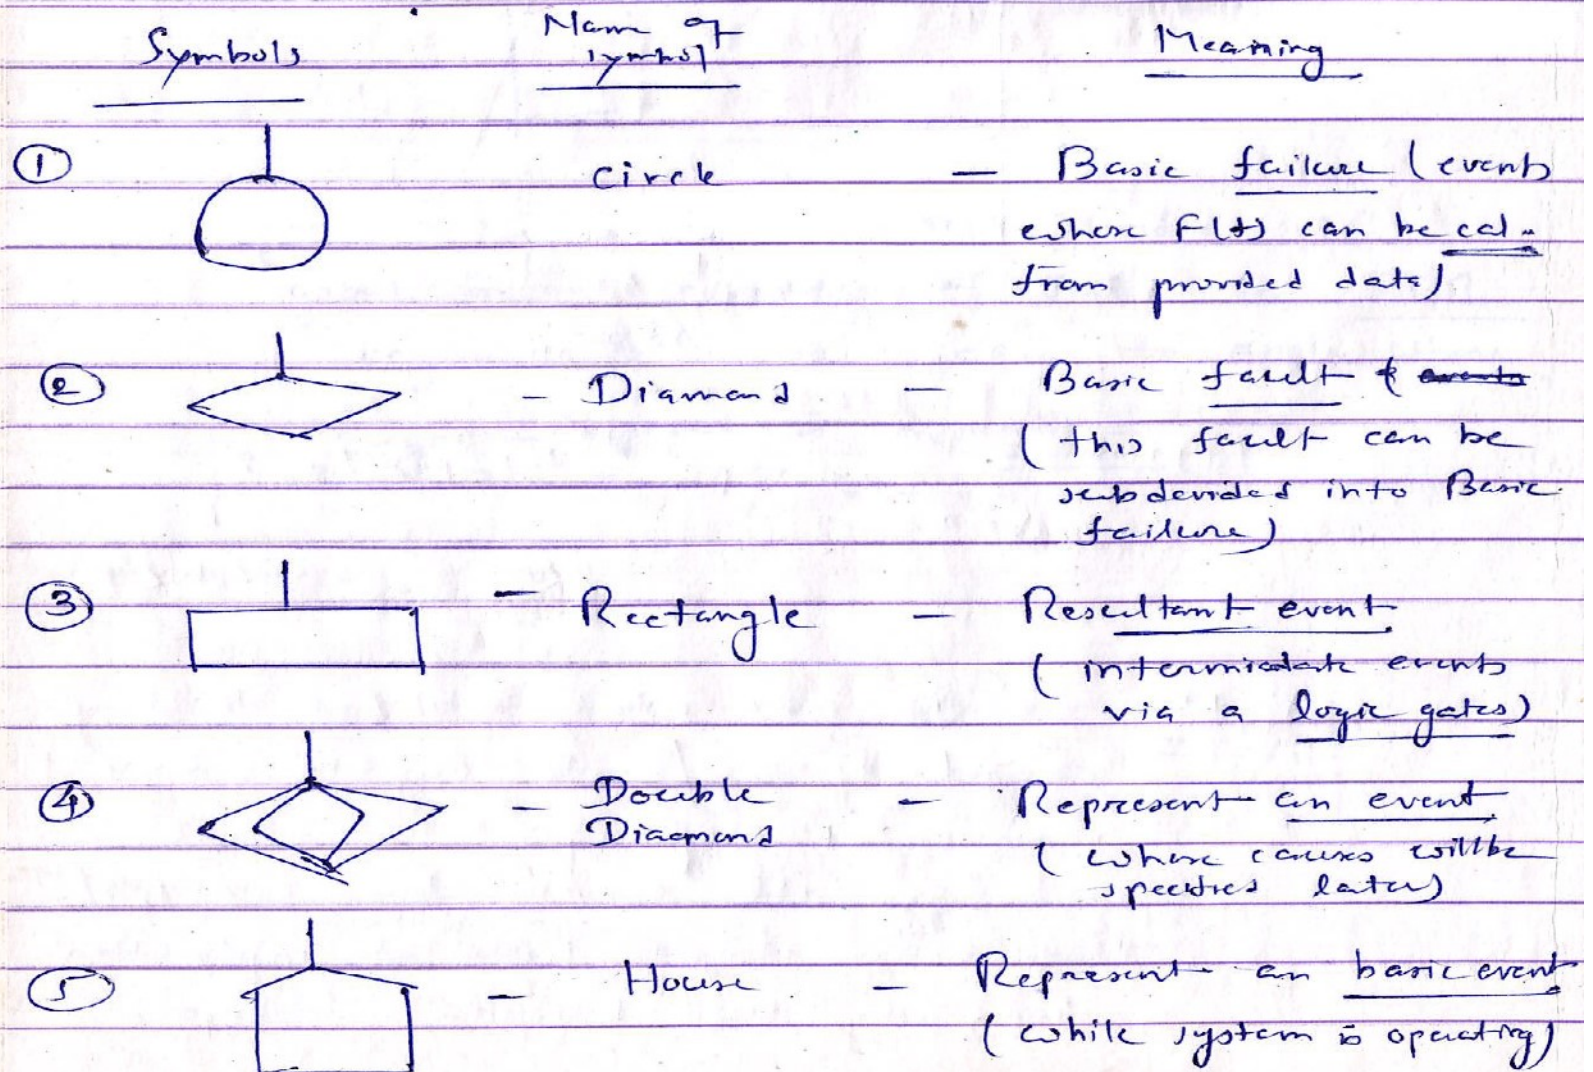 Symbols Name of symbol Meaning
① circle — Basic failure (events
where F(t) can be cal.
from provided data)
② – Diamond — Basic fault ( events
(this fault can be
subdevided into Basic
failure)
③ – Rectangle — Resultant event
(intermidate events
via a logic gates)
④ – Double Diamond – Represent an event
(whose causes will be
specified later)
⑤ – House – Represent an basic event
(while system is operating)